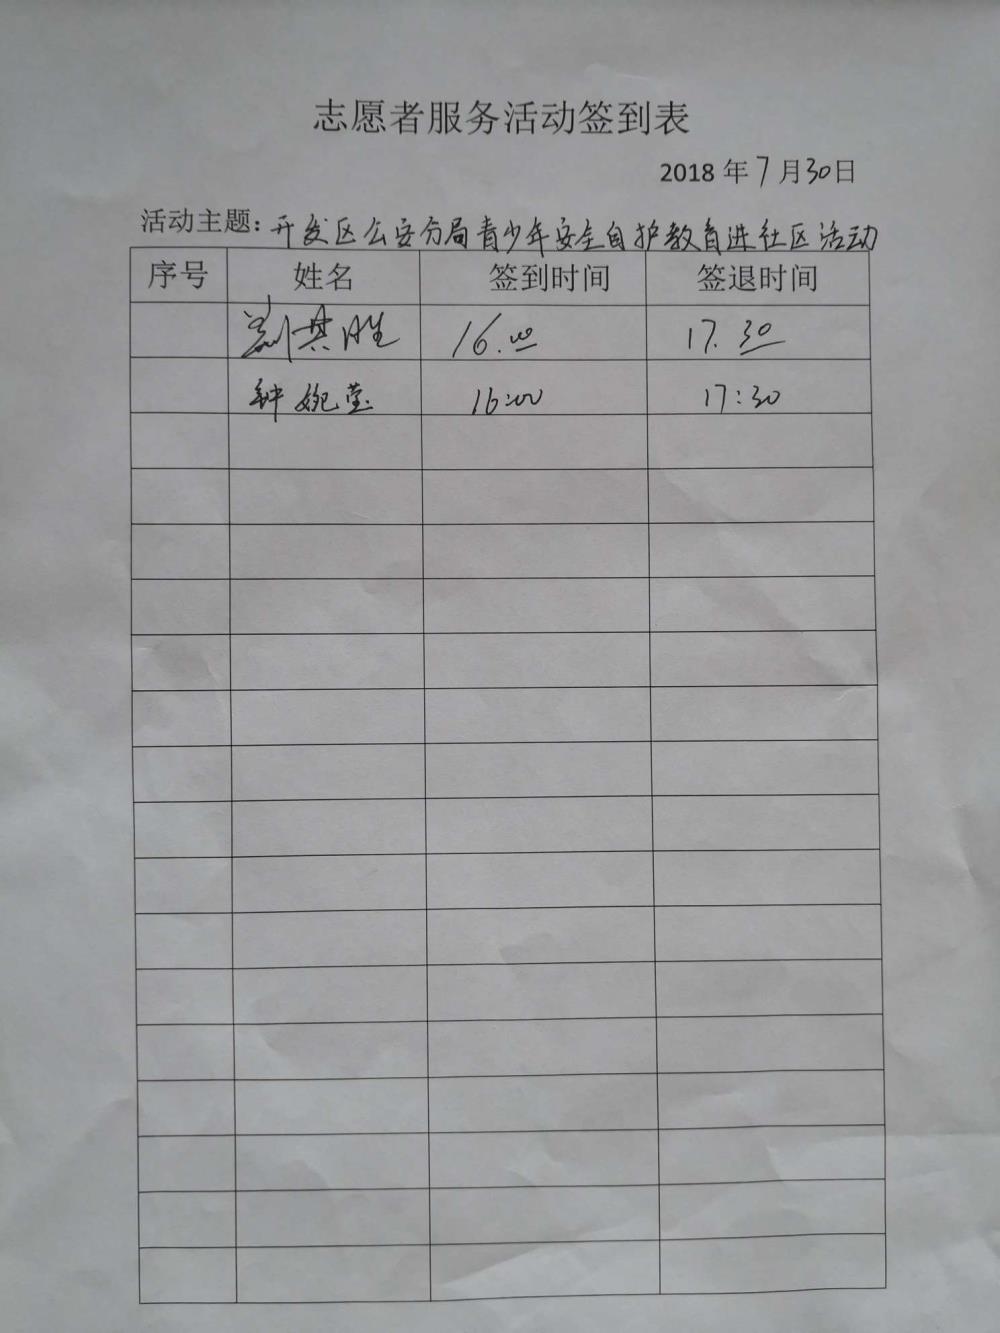 志愿者服务活动签到表
2018 年 7 月 30 日
活动主题: 开发区公安分局青少年安全自护教育进社区活动
序号 姓名 签到时间 签退时间
刘其胜 16.00 17.30
钟婉莹 16:00 17:30